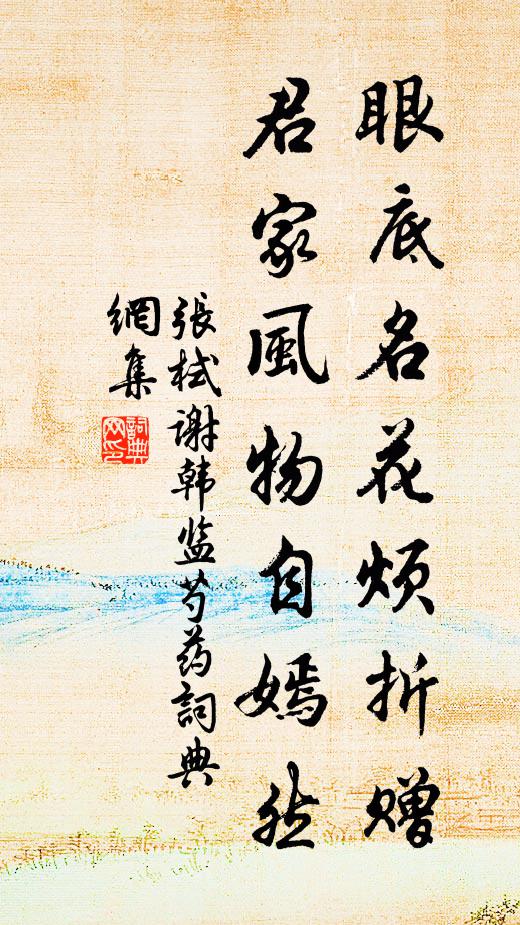 眼底名花烦折赠
君家風物自嫣然
張栻谢韩监芍药詞典
網集
詞典
网印